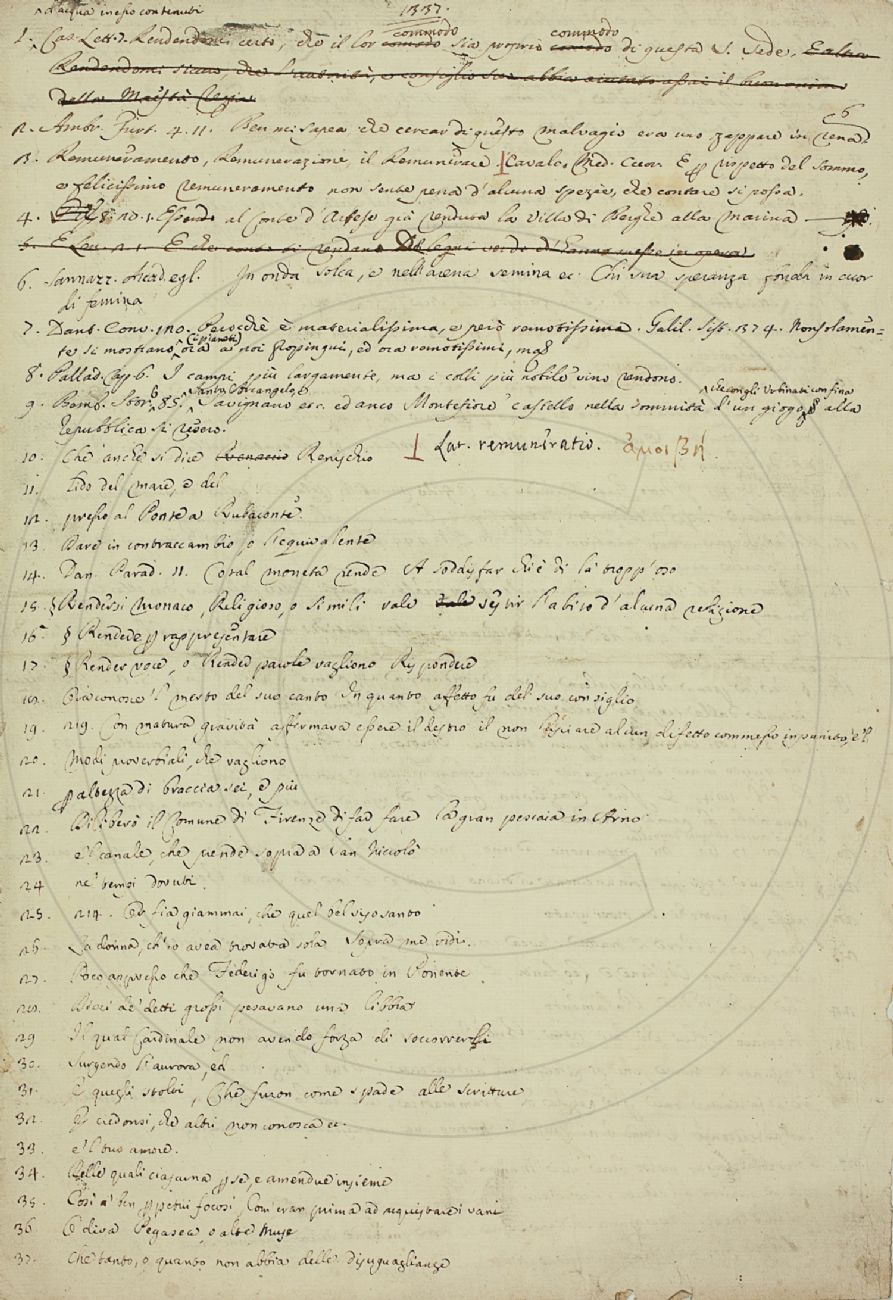 d'acqua in esso contenuti
1337.
commodo commodo
1. Cas. Lett. 7. Rendendomi certo, che il lor comodo sia proprio comodo di questa S. Sede. E altro
Rendendomi sicuro, che l'autorità, e consiglio suo abbia aiutato assai il buon animo
della Maestà Regia
2. Ambr. Furt. 4. 11. Ben mi sapea che cercar di questo malvagio era uno zappare in rena
3. Remuneramento, Remunerazione il Remunerare Cavalc. Med. Cuor. E p rispetto del sommo,
e felicissimo remuneramento non sente pena d'alcuna spezie, che contare si possa.
4. al Conte d'Artese qui rendura la villa di Berghe alla marina
5. E
6. Sannazz. Arcad. egl. In onda solca, e nell'arena semina ec. Chi sua speranza fonda in cuor
di femina
7. Dant. Conv. 110. Perocchè è materialissima, e però remotissima. Galil. Sist. 374. Non solamen-
te si mostrano ora a noi propinqui, ed ora remotissimi, ma
8. Pallad. Cap. 6. I campi più largamente, ma i colli più nobile vino rendono.
Santo Arcangelo che con gli Urbinati confina
9. Bemb. Stor. 6. 85. Savignano etc. ed anco Montefiore castello nella sommità d'un giogo alla
Repubblica si rendero.
10. Che anche si dice Renischio Lat. remuneratio. ἀμοιβή.
11. Lido del mare, e del
12. presso al Ponte a Rubaconte.
13. Dare in contraccambio, o l'equivalente
14. Dan. Parad. 11. Cotal moneta rende A soddisfar chi è di là tropp'oso
15. § Rendersi Monaco, Religioso, o simili vale vestir l'abito d'alcuna religione
16. § Rendere p rappresentare
17. § Render voce, o Render parole vagliono Rispondere
18. Ora conosce 'l merto del suo canto In quanto affetto fu del suo consiglio
19. 219. Con matura gravità affermava essere il destro il non lasciare alcun difetto commesso impunito, e 'l
20. Modi proverbiali, che vagliono
21. p altezza di braccia sei, e più
22. Diliberò il Comune di Firenze di far fare la gran pescaia in Arno
23. e 'l canale, che prende sopra a San Niccolò
24 ne' tempi dovuti.
25. 214. Or sia giammai, che quel bel viso santo
26. La donna, ch'io avea trovata sola Sopra me vidi.
27. Poco appresso che Federigo fu tornato in Ponente
28. Dieci de' detti grossi pesavano una libbra
29 Il qual Cardinale non avendo forza di soccorrerli
30. Surgendo l'aurora, ed
31. E quegli stolti, Che furon come spade alle scritture
32. Et credonsi, che altri non conosca ec.
33. e 'l tuo amore.
34. Delle quali ciascuna p sè, e amendue insieme
35. Così a' ben ppetui focosi, Com'eran prima ad acquistare i vani
36. O diva Pegasea, o alte Muse
37. Che tanto, o quanto non abbia delle disuguaglianze